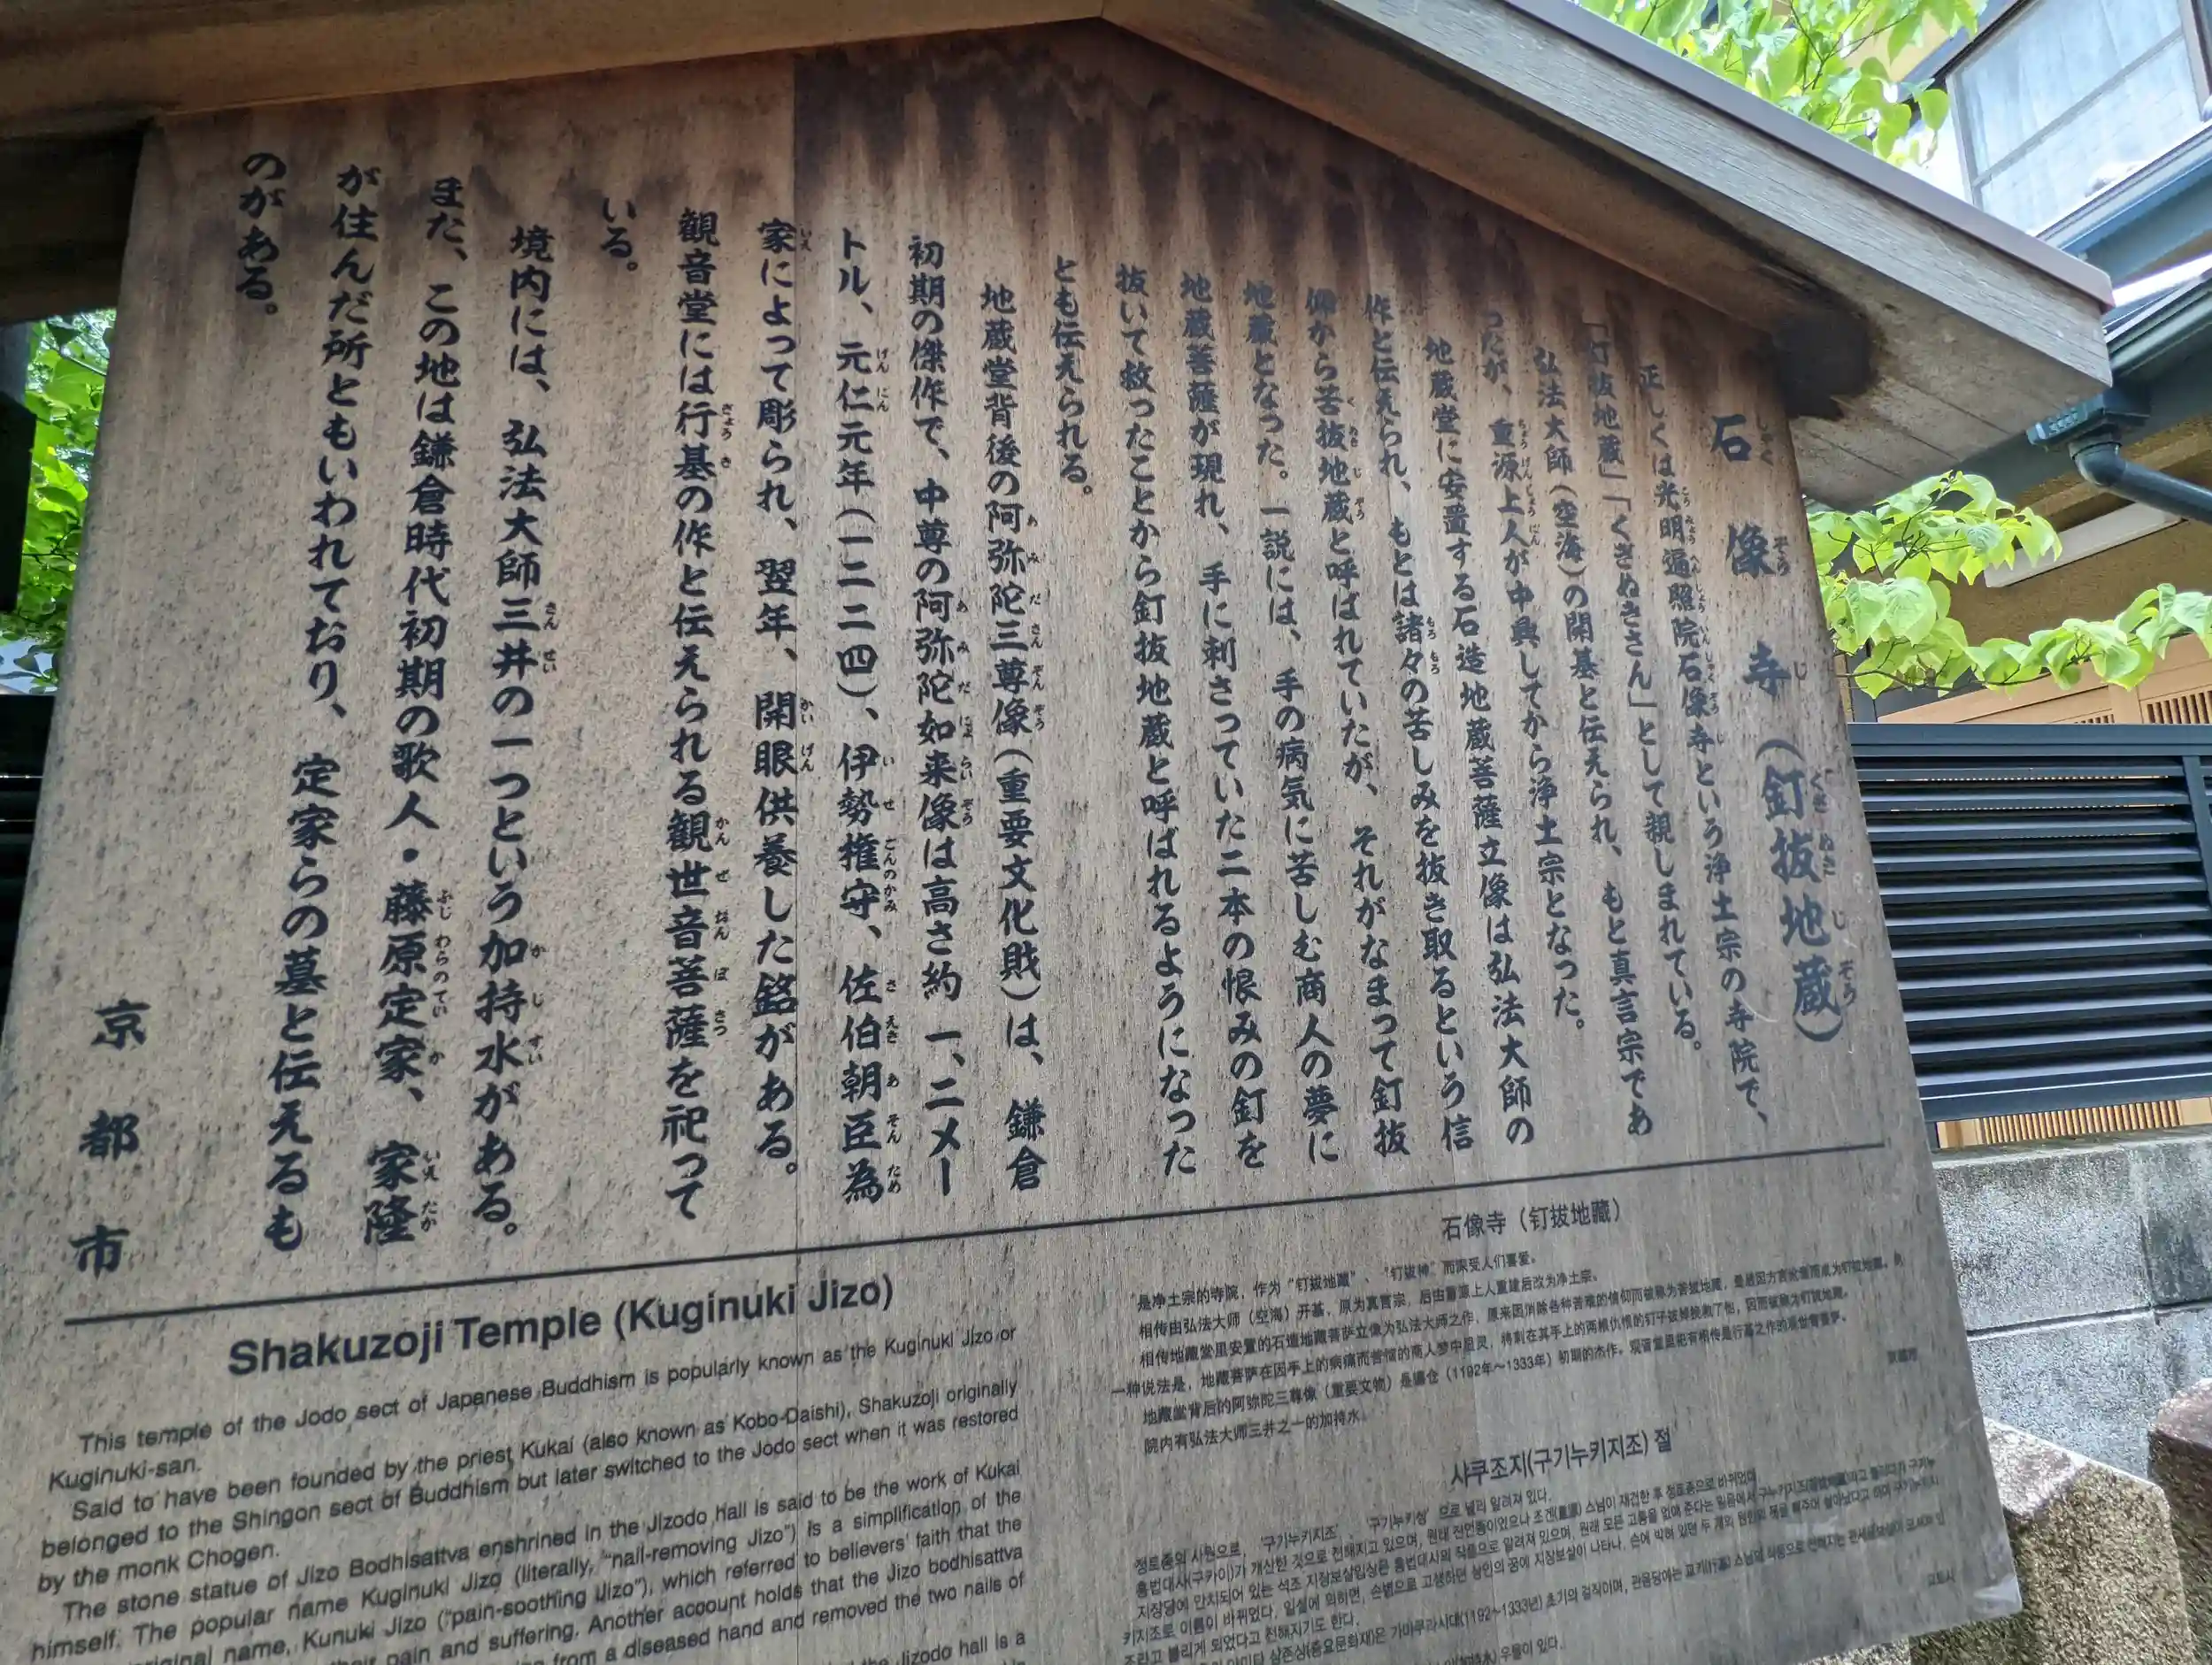 石像寺（釘抜地蔵）
正しくは光明遍照院石像寺という浄土宗の寺院で、
「釘抜地蔵」「くぎぬきさん」として親しまれている。
弘法大師（空海）の開基と伝えられ、もと真言宗であ
ったが、重源上人が中興してから浄土宗となった。
地蔵堂に安置する石造地蔵菩薩立像は弘法大師の
作と伝えられ、もとは諸々の苦しみを抜き取るという信
仰から苦抜地蔵と呼ばれていたが、それがなまって釘抜
地蔵となった。一説には、手の病気に苦しむ商人の夢に
地蔵菩薩が現れ、手に刺さっていた二本の恨みの釘を
抜いて救ったことから釘抜地蔵と呼ばれるようになった
とも伝えられる。
地蔵堂背後の阿弥陀三尊像（重要文化財）は、鎌倉
初期の傑作で、中尊の阿弥陀如来像は高さ約一、二メー
トル、元仁元年（一二二四）、伊勢権守、佐伯朝臣為
家によって彫られ、翌年、開眼供養した銘がある。
観音堂には行基の作と伝えられる観世音菩薩を祀って
いる。
境内には、弘法大師三井の一つという加持水がある。
また、この地は鎌倉時代初期の歌人・藤原定家、家隆
が住んだ所ともいわれており、定家らの墓と伝えるも
のがある。
京都市
Shakuzoji Temple (Kuginuki Jizo)
This temple of the Jodo sect of Japanese Buddhism is popularly known as the Kuginuki Jizo or
Kuginuki-san.
Said to have been founded by the priest Kukai (also known as Kobo-Daishi), Shakuzoji originally
belonged to the Shingon sect of Buddhism but later switched to the Jodo sect when it was restored
by the monk Chogen.
The stone statue of Jizo Bodhisattva enshrined in the Jizodo hall is said to be the work of Kukai
himself. The popular name Kuginuki Jizo (literally, "nail-removing Jizo") is a simplification of the
original name, Kunuki Jizo ("pain-soothing Jizo"), which referred to believers' faith that the
their pain and suffering. Another account holds that the Jizo bodhisattva
from a diseased hand and removed the two nails of
the Jizodo hall is a
石像寺（钉拔地藏）
是净土宗的寺院，作为“钉拔地藏”、“钉拔神”而深受人们喜爱。
相传由弘法大师（空海）开基，原为真言宗，后由重源上人重建后改为净土宗。
相传地藏堂里安置的石造地藏菩萨立像为弘法大师之作，原来因消除各种苦难的信仰而被称为苦拔地藏，
一种说法是，地藏菩萨在因手上的病痛而苦恼的商人梦中显灵，将刺在其手上的两根仇恨的钉子拔掉挽救了他，因而被称为钉拔地藏。
地藏堂背后的阿弥陀三尊像（重要文物）是镰仓（1192年～1333年）初期的杰作。观音堂里祀有相传是行基之作的观世音菩萨。
院内有弘法大师三井之一的加持水。
샤쿠조지(구기누키지조) 절
정토종의 사원으로, '구기누키지조', '구기누키상' 으로 널리 알려져 있다.
홍법대사(구카이)가 개산한 것으로 전해지고 있으며, 원래 진언종이었으나 조겐(重源) 스님이 재건한 후 정토종으로 바뀌었다.
지장당에 안치되어 있는 석조 지장보살입상은 홍법대사의 작품으로 알려져 있으며, 원래 모든 고통을 없애 준다는 믿음에서
키지조로 이름이 바뀌었다. 일설에 의하면, 손병으로 고생하던 상인의 꿈에 지장보살이 나타나, 손에 박혀 있던 두 개의 원한의 못을
조라고 불리게 되었다고 전해지기도 한다.
삼존상(중요문화재)은 가마쿠라시대(1192~1333년) 초기의 걸작이며, 관음당에는 교키(行基) 스님의 작품으로 전해지는
우물이 있다.
교토시